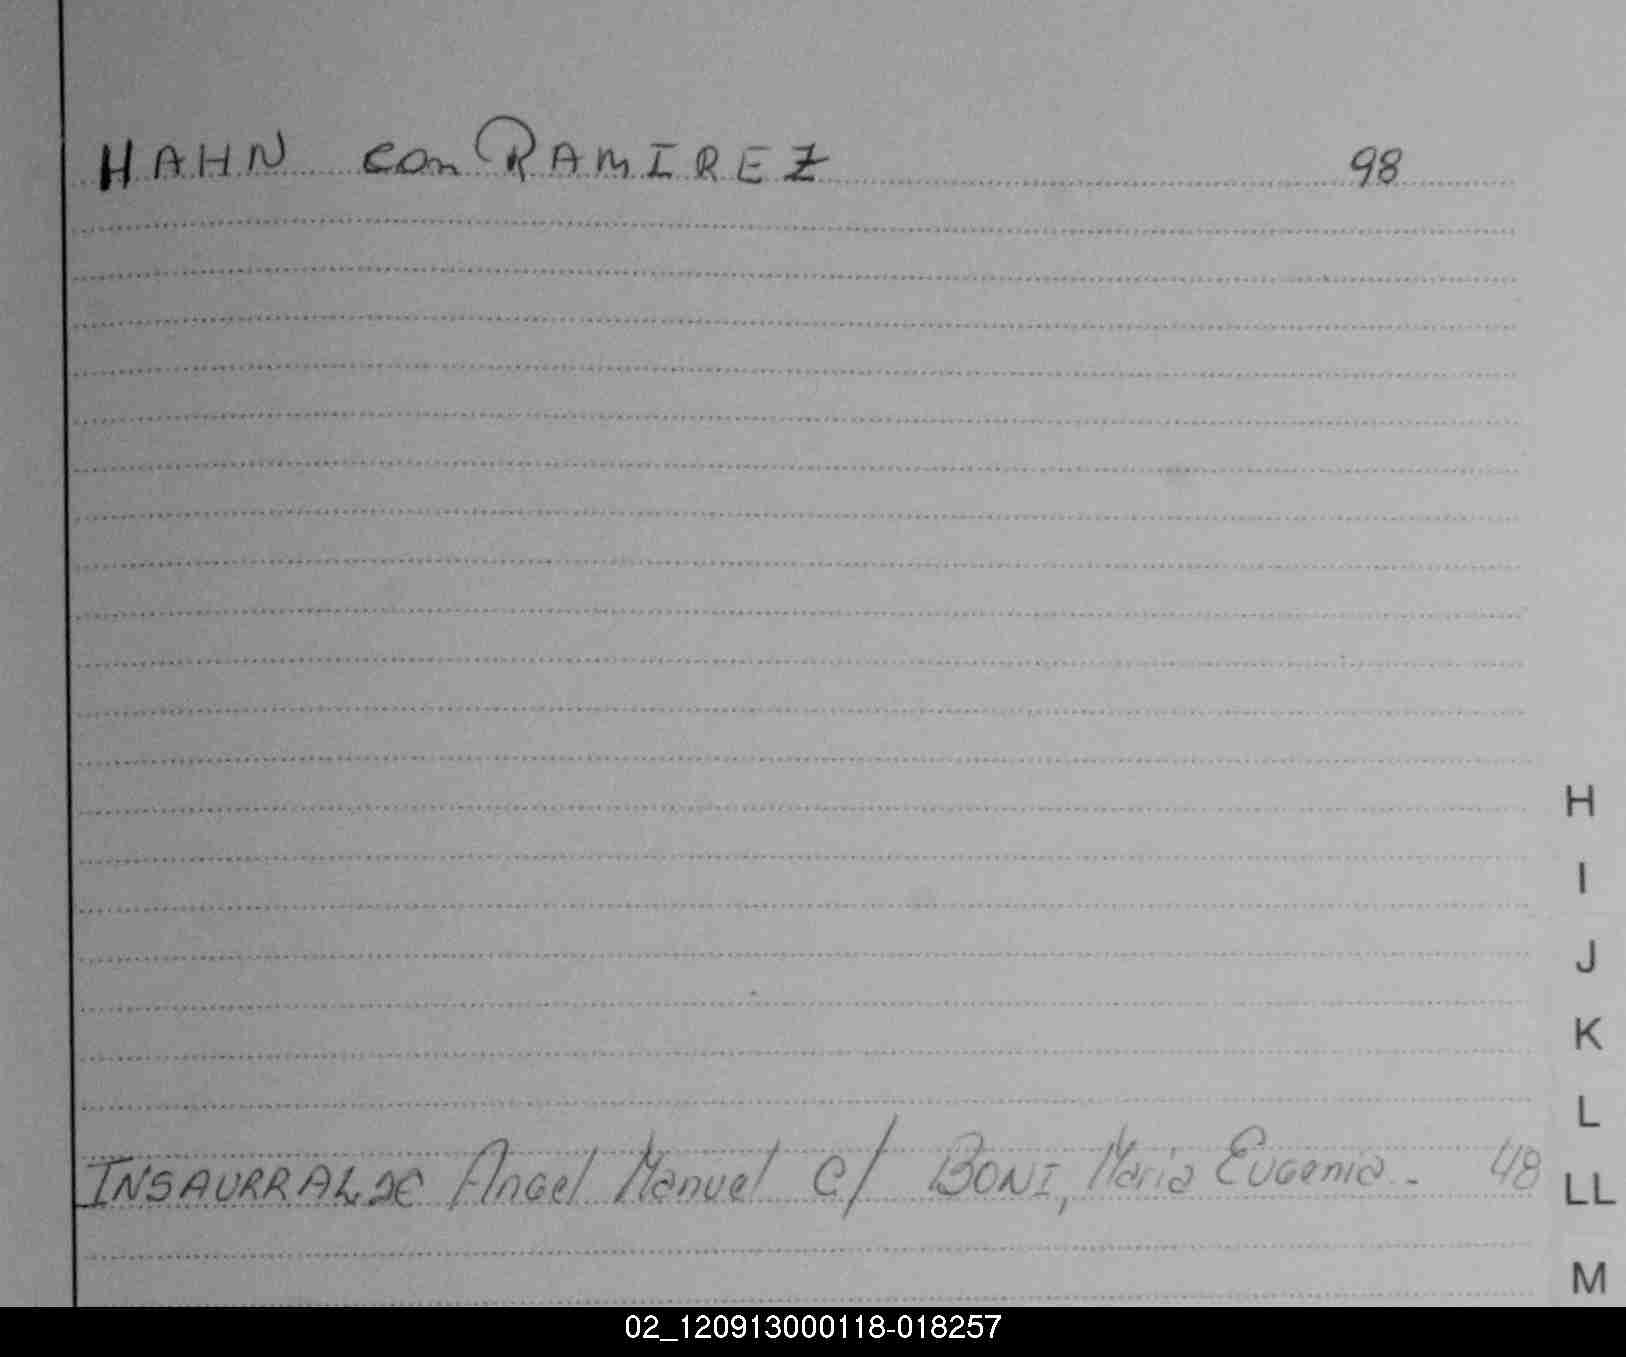 HAHN con RAMIREZ 98
H
I
J
K
L
INSAURRALDE Angel Manuel c/ BONI, Maria Eugenia.- 48
LL
M
02_120913000118-018257